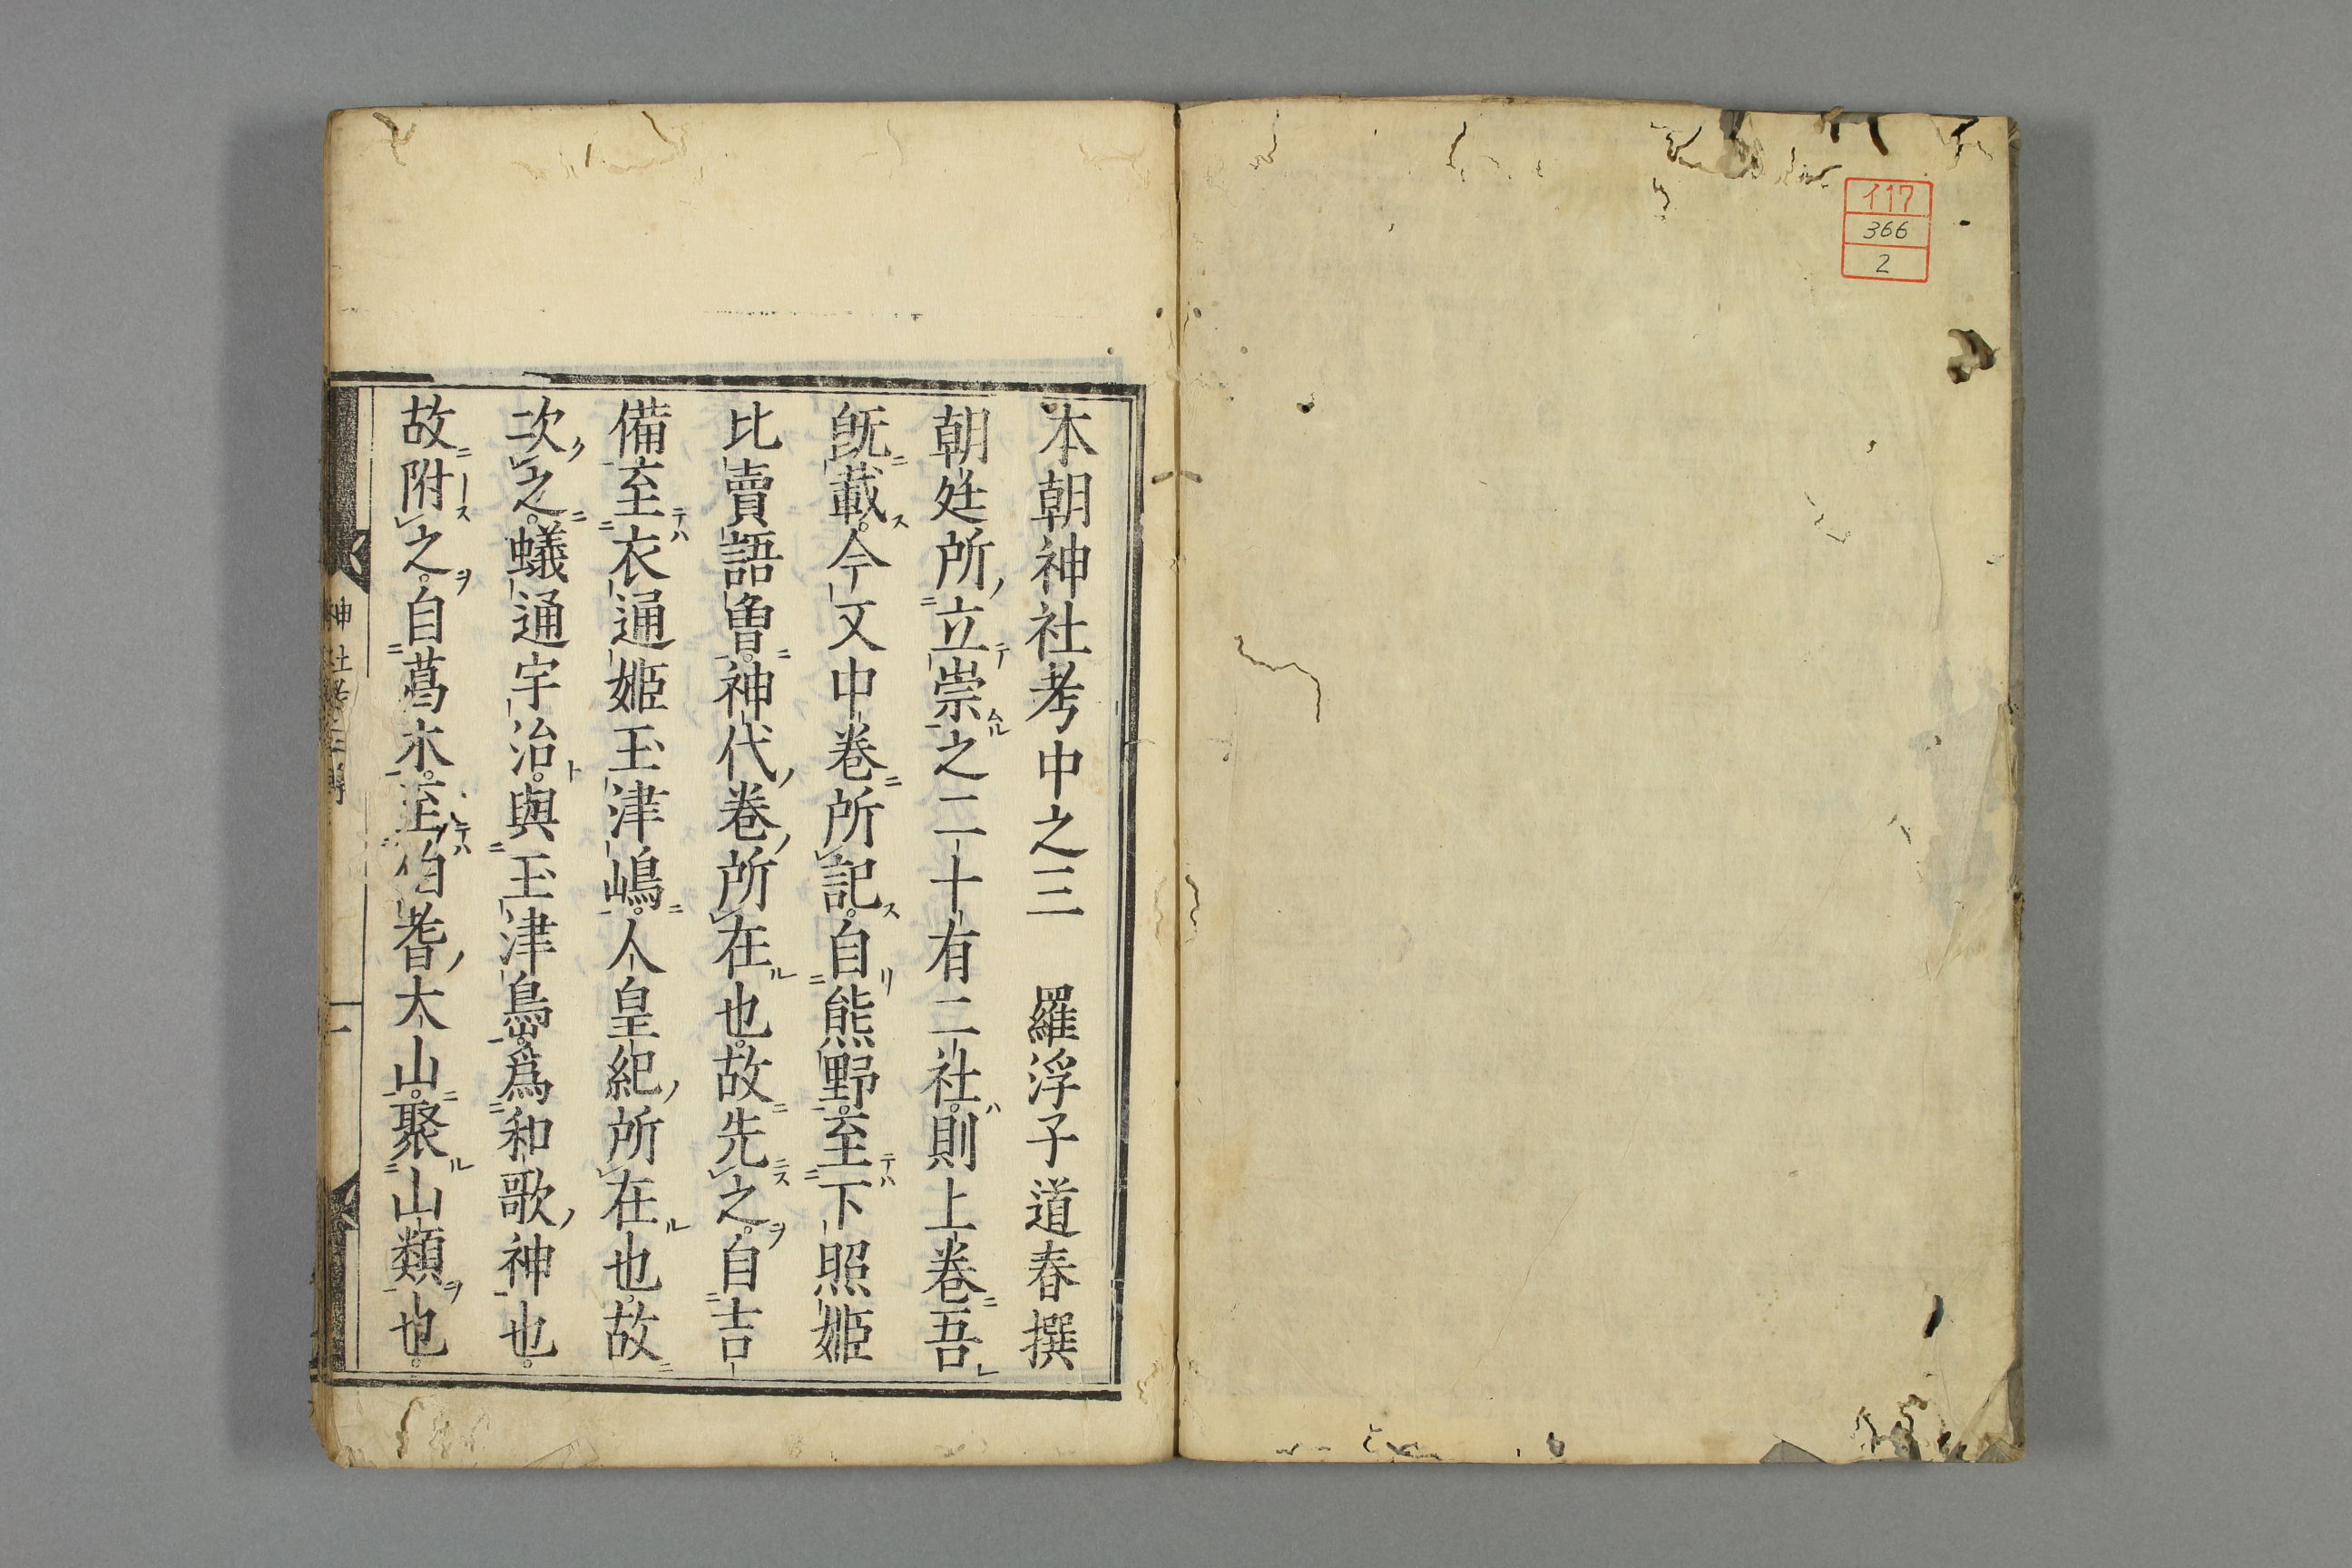 117
366
2
本朝神社考中之三　羅浮子道春撰
朝廷所立崇之二十有二社則上卷吾
既載今又中卷所記自熊野至下照姬
比賣語曾神代卷所在也故先之自吉
備至衣通姬玉津嶋人皇紀所在也故
次之蟻通宇治與玉津嶌爲和歌神也
故附之自葛木至伯耆大山聚山類也
神社考
一